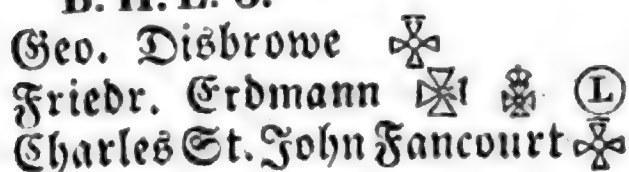 Geo. Disbrowe
Friedr. Erdmann 1 L
Charles St. John Fancourt